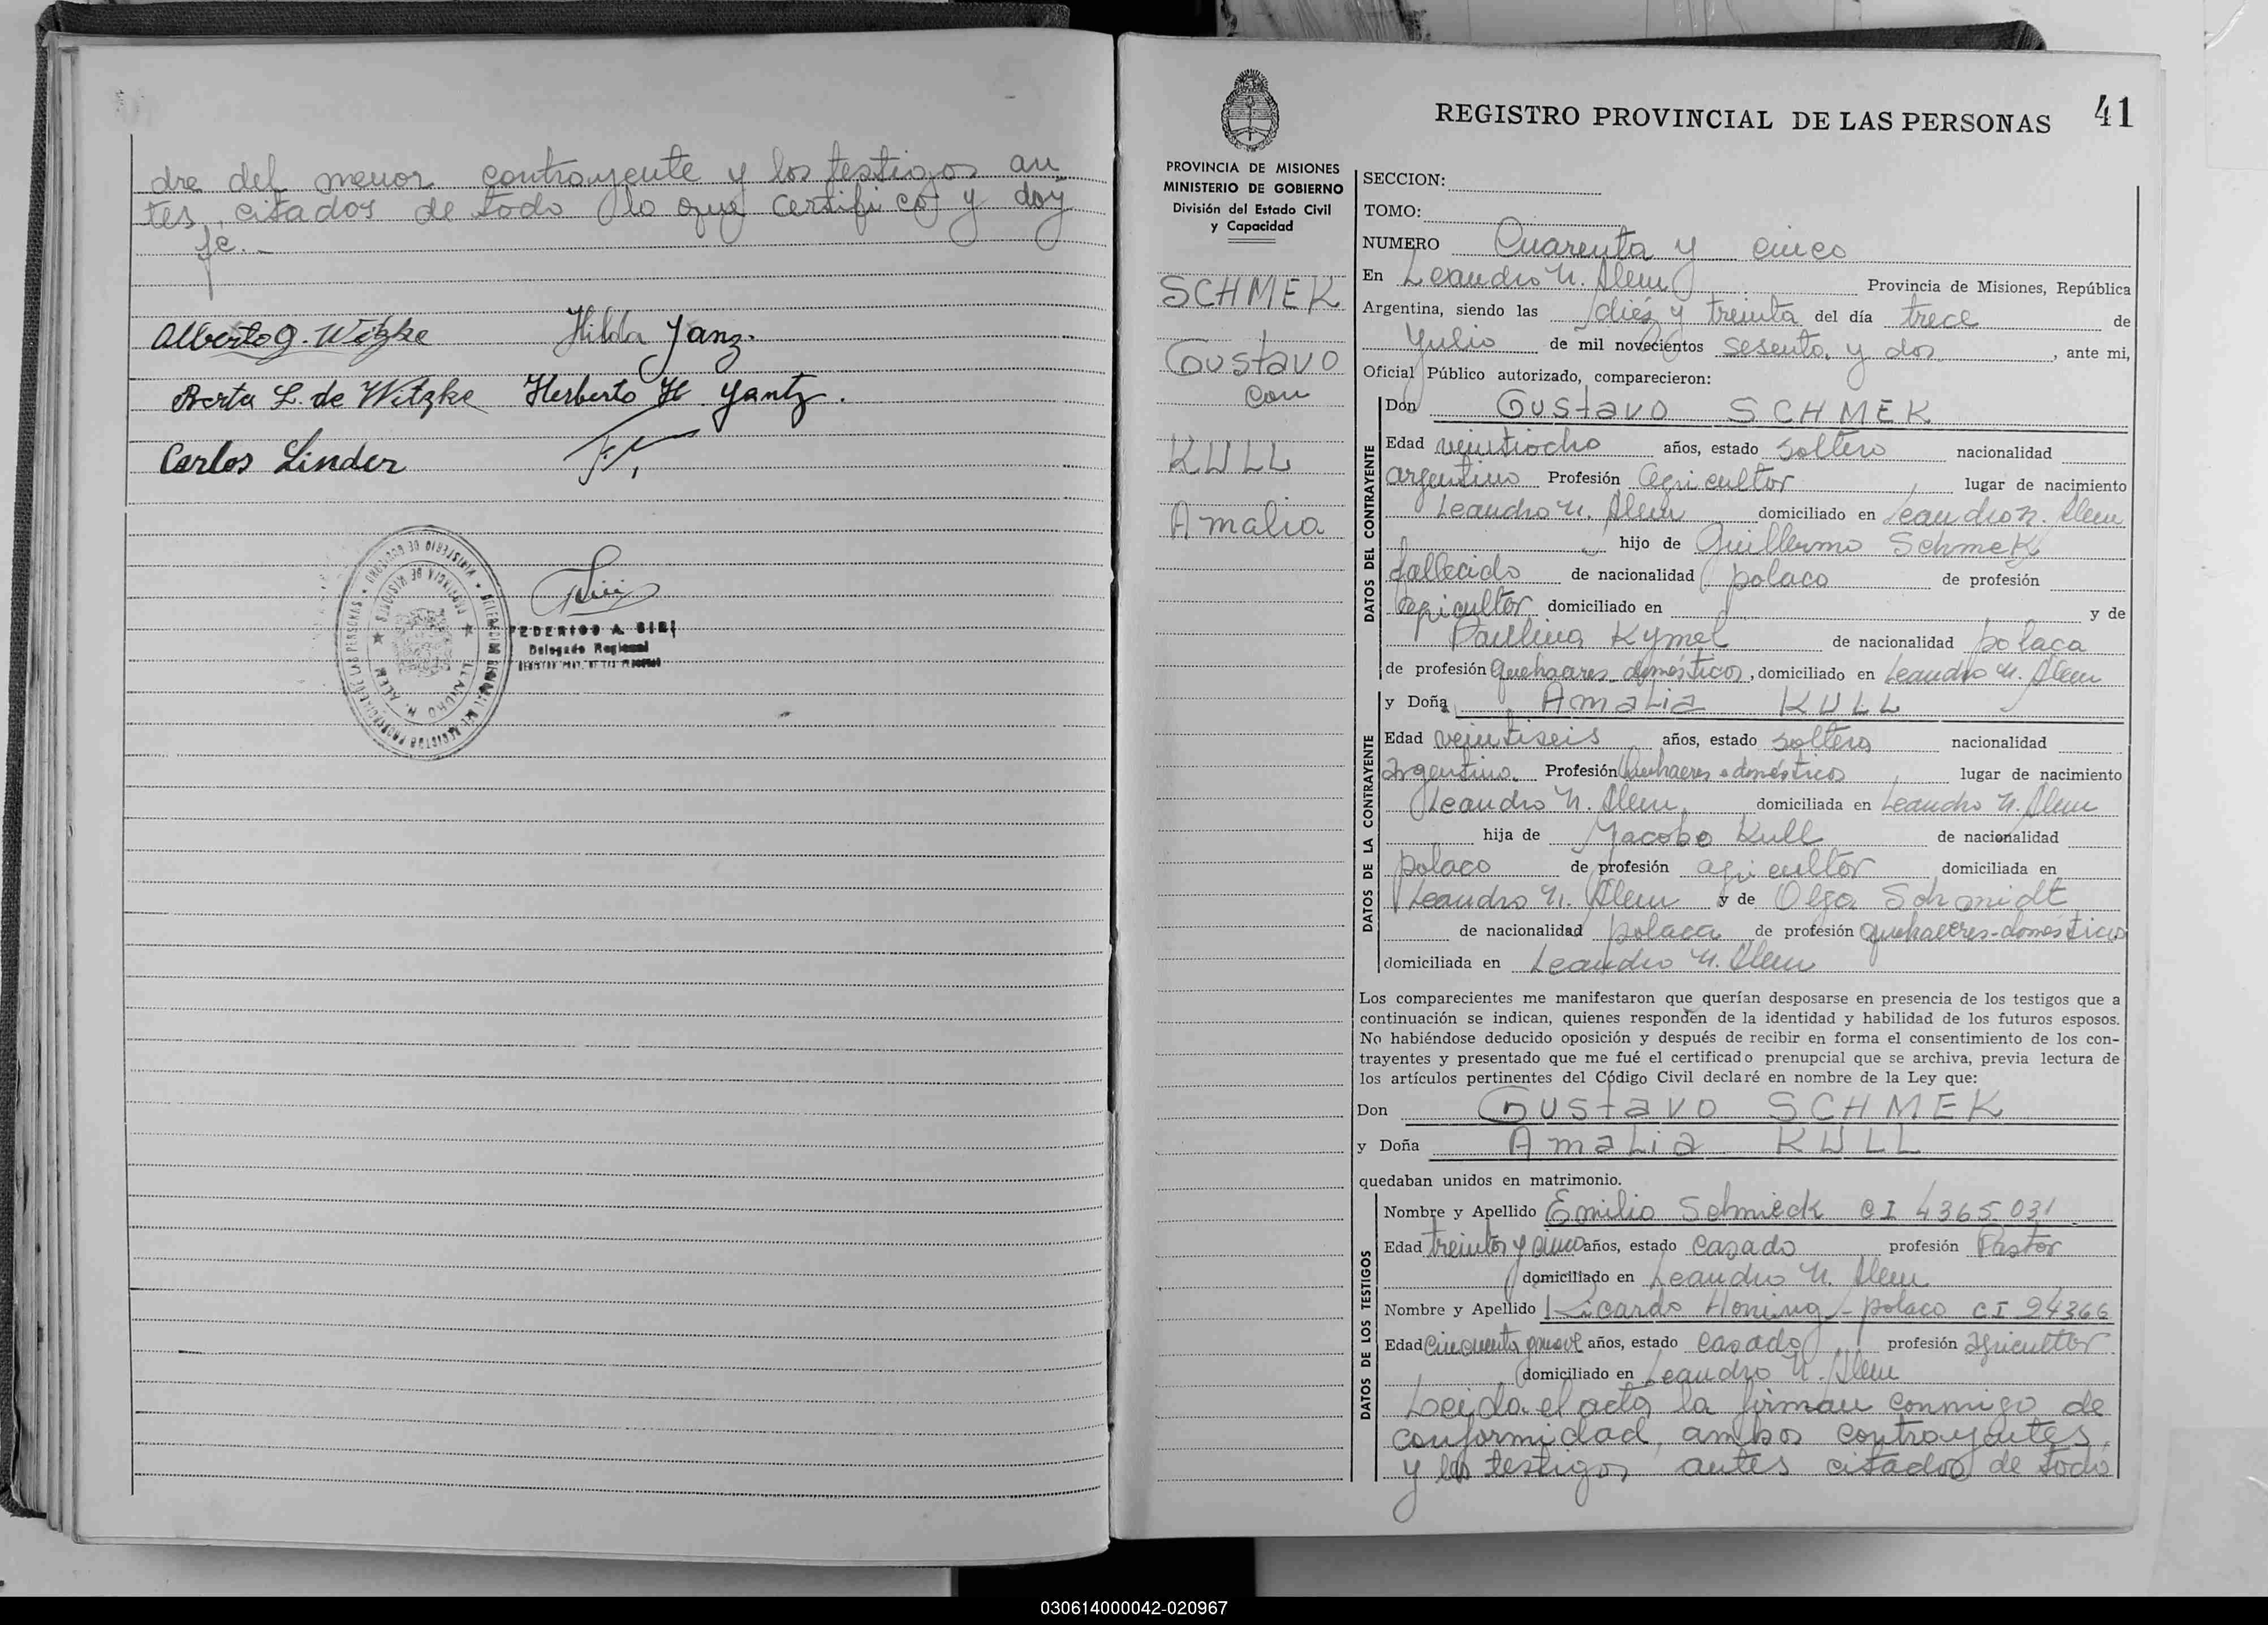 dre del menor contrayente y los testigos an
tes citados de todo lo que certifico y doy
fe.-
Alberto G. Witzke Hilda Janz.
Berta L. de Witzke Herberto H. Yantz.
Carlos Linder
FEDERICO A. SIRI
Delegado Regional
41
REGISTRO PROVINCIAL DE LAS PERSONAS
PROVINCIA DE MISIONES
MINISTERIO DE GOBIERNO
División del Estado Civil
y Capacidad
SCHMEK
Gustavo
con
KULL
Amalia
SECCION:
TOMO:
NUMERO Cuarenta y cinco
En Leandro N. Alem Provincia de Misiones, República
Argentina, siendo las diés y treinta del día trece de
Julio de mil novecientos sesenta y dos, ante mi,
Oficial Público autorizado, comparecieron:
DATOS DEL CONTRAYENTE
Don Gustavo SCHMEK
Edad veintiocho años, estado soltero nacionalidad
argentino Profesión agricultor lugar de nacimiento
Leandro N. Alem domiciliado en Leandro N. Alem
hijo de Guillermo Schmek
fallecido de nacionalidad polaco de profesión
agricultor domiciliado en y de
Paulina Kymel de nacionalidad polaca
de profesión quehaares domésticos, domiciliado en Leandro N. Alem
DATOS DE LA CONTRAYENTE
y Doña Amalia KULL
Edad veintiseis años, estado soltera nacionalidad
argentina Profesión Quehaeres domésticos lugar de nacimiento
Leandro N. Alem domiciliada en Leandro N. Alem
hija de Jacobo Kull de nacionalidad
polaco de profesión agricultor domiciliada en
Leandro N. Alem y de Olga Schmidt
de nacionalidad polaca de profesión quehaceres-domésticos
domiciliada en Leandro N. Alem
Los comparecientes me manifestaron que querían desposarse en presencia de los testigos que a
continuación se indican, quienes responden de la identidad y habilidad de los futuros esposos.
No habiéndose deducido oposición y después de recibir en forma el consentimiento de los con-
trayentes y presentado que me fué el certificado prenupcial que se archiva, previa lectura de
los artículos pertinentes del Código Civil declaré en nombre de la Ley que:
Don Gustavo SCHMEK
y Doña Amalia KULL
quedaban unidos en matrimonio.
DATOS DE LOS TESTIGOS
Nombre y Apellido Emilio Schmieck CI 4365 031
Edad treinta y cinco años, estado casado profesión Pastor
domiciliado en Leandro N. Alem
Nombre y Apellido Ricardo Honing - polaco CI 24366
Edad cincuenta y nueve años, estado casado profesión agricultor
domiciliado en Leandro N. Alem
Leida el acta la firman conmigo de
conformidad, ambos contrayentes,
y los testigos antes citados de todo
030614000042-020967